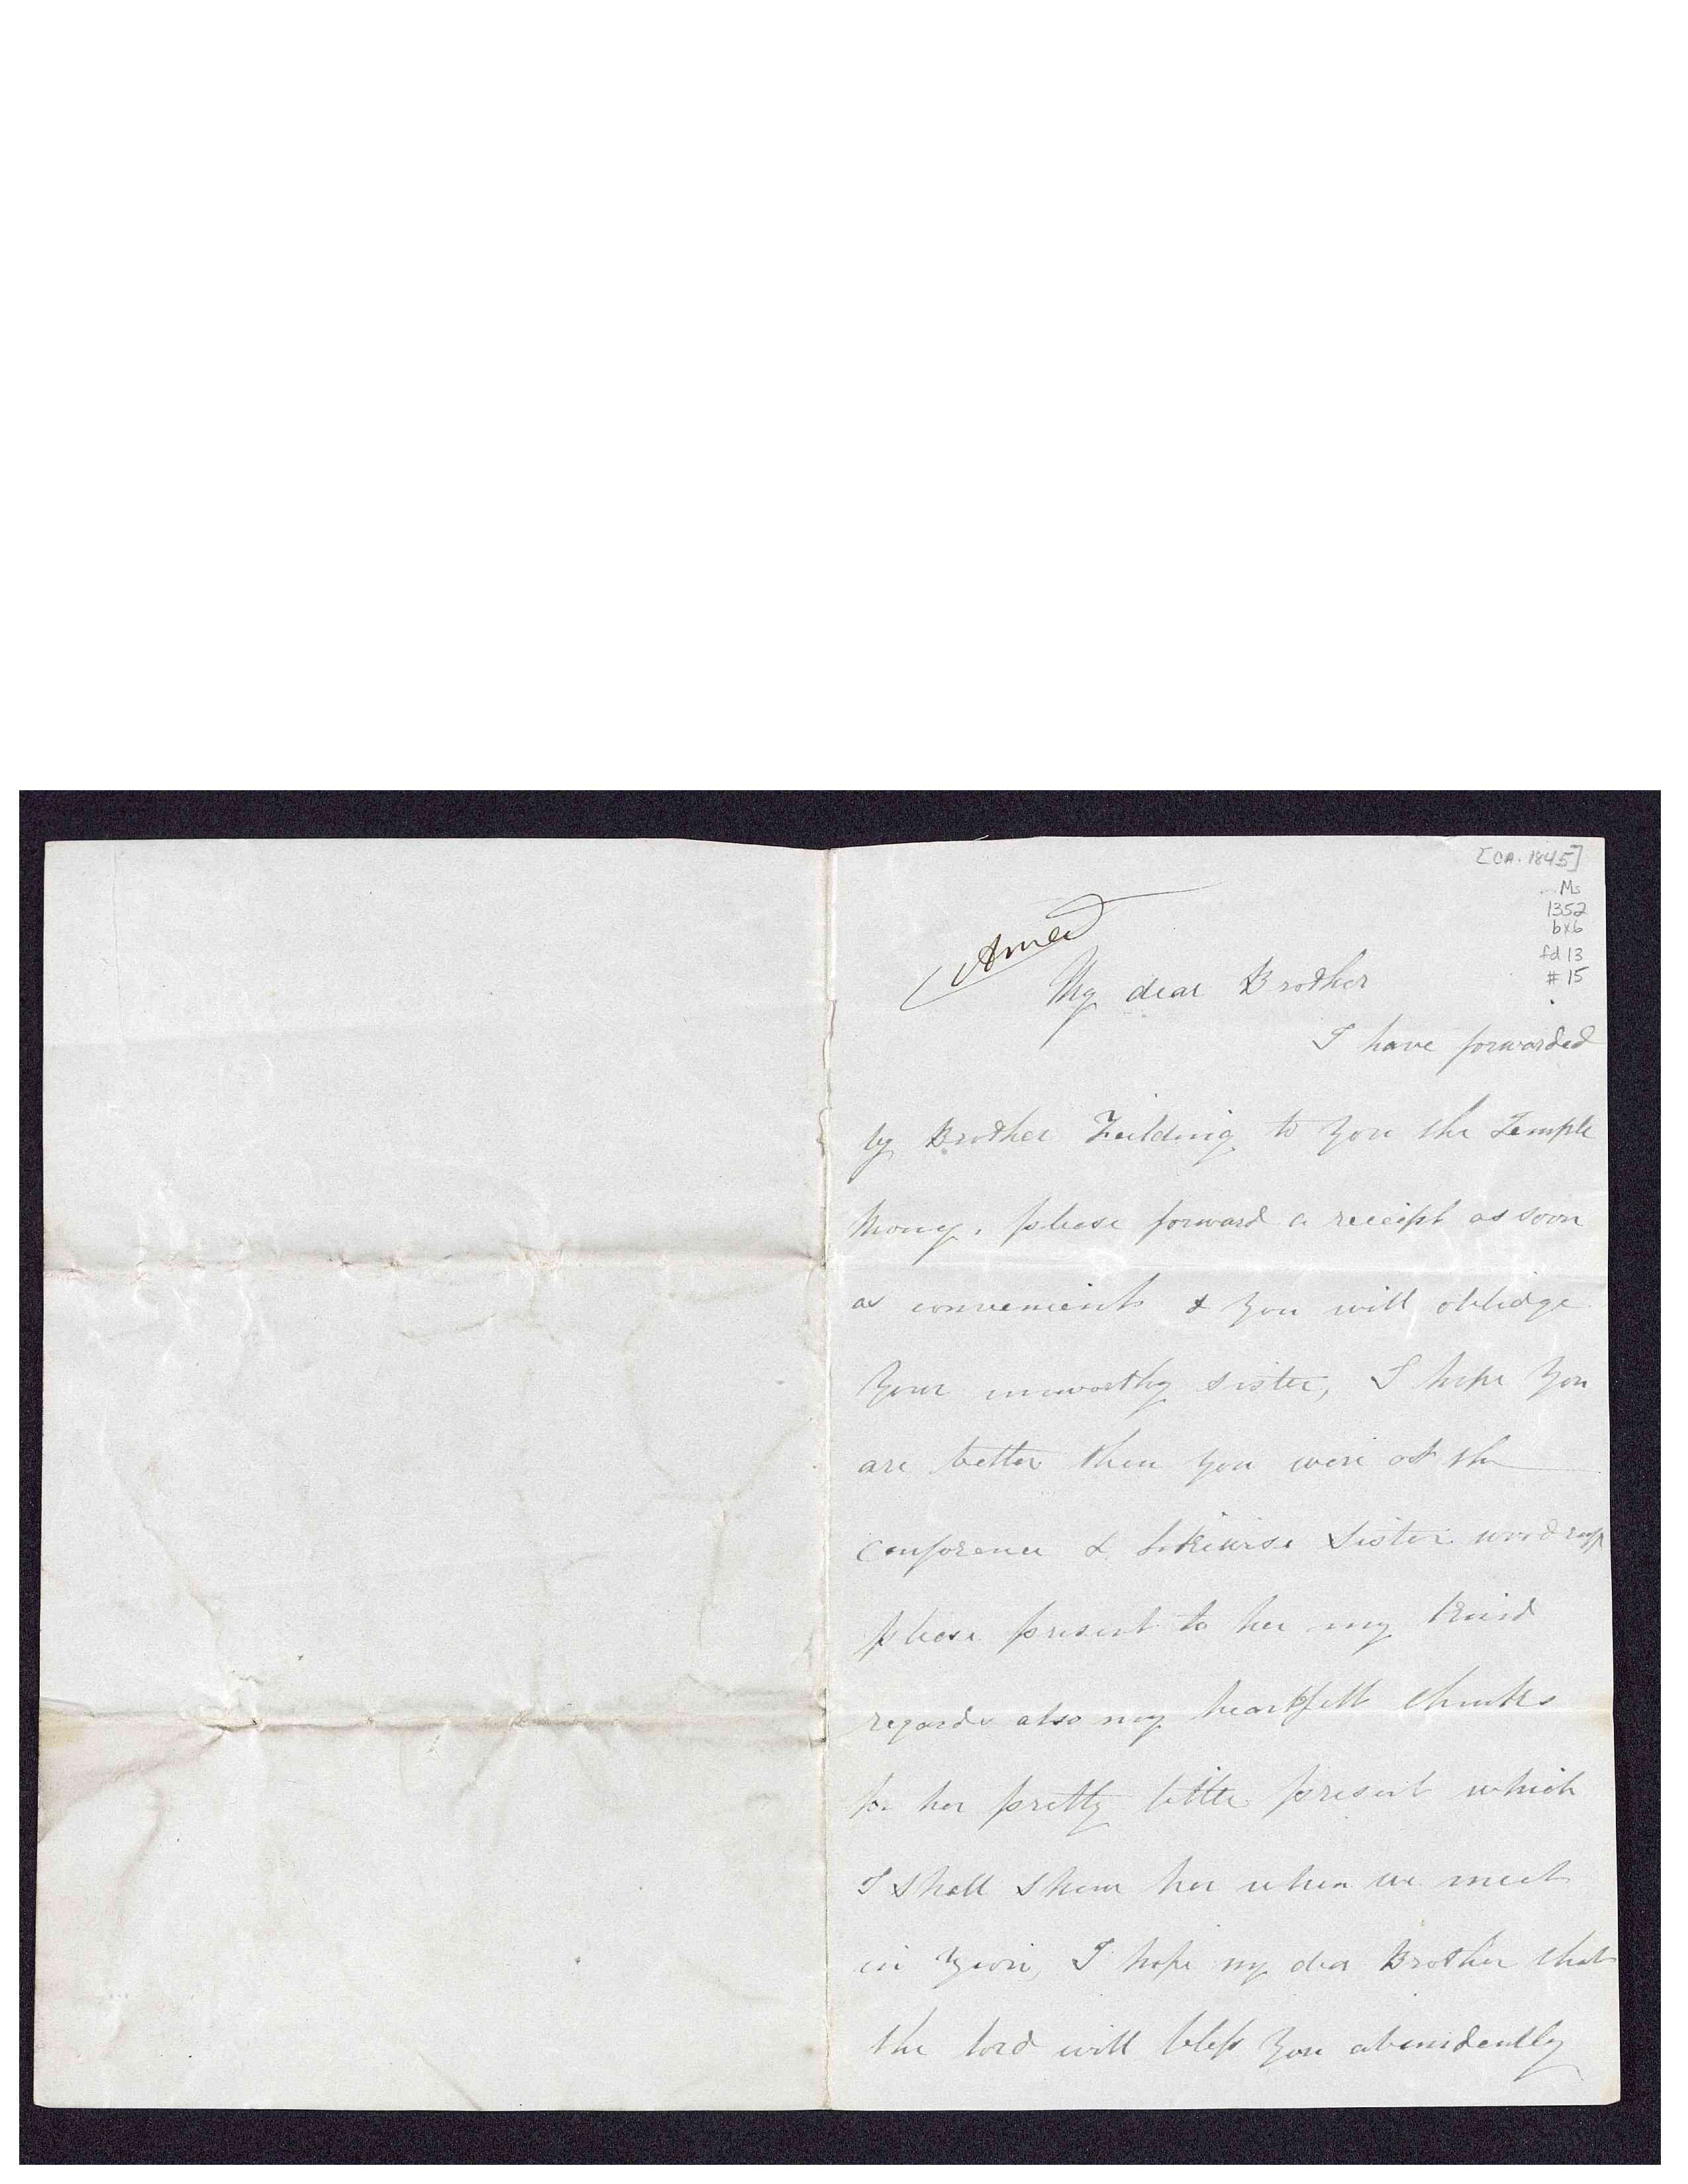 [CA. 1845]
Ms
1352
bx6
fd 13
# 15
My dear Brother
I have forwarded
by Brother Feilding to you the Temple
Money, please forward a receipt as soon
as convenient & you will oblidge
Your unworthy sister, I hope you
are better then you were at the
conference & likewise Sister woodruff
please present to her my kind
regards also my heartfelt thanks
for her pretty little present which
I shall shew her when we meet
in Zion, I hope my dear Brother that
the lord will bless you abundently